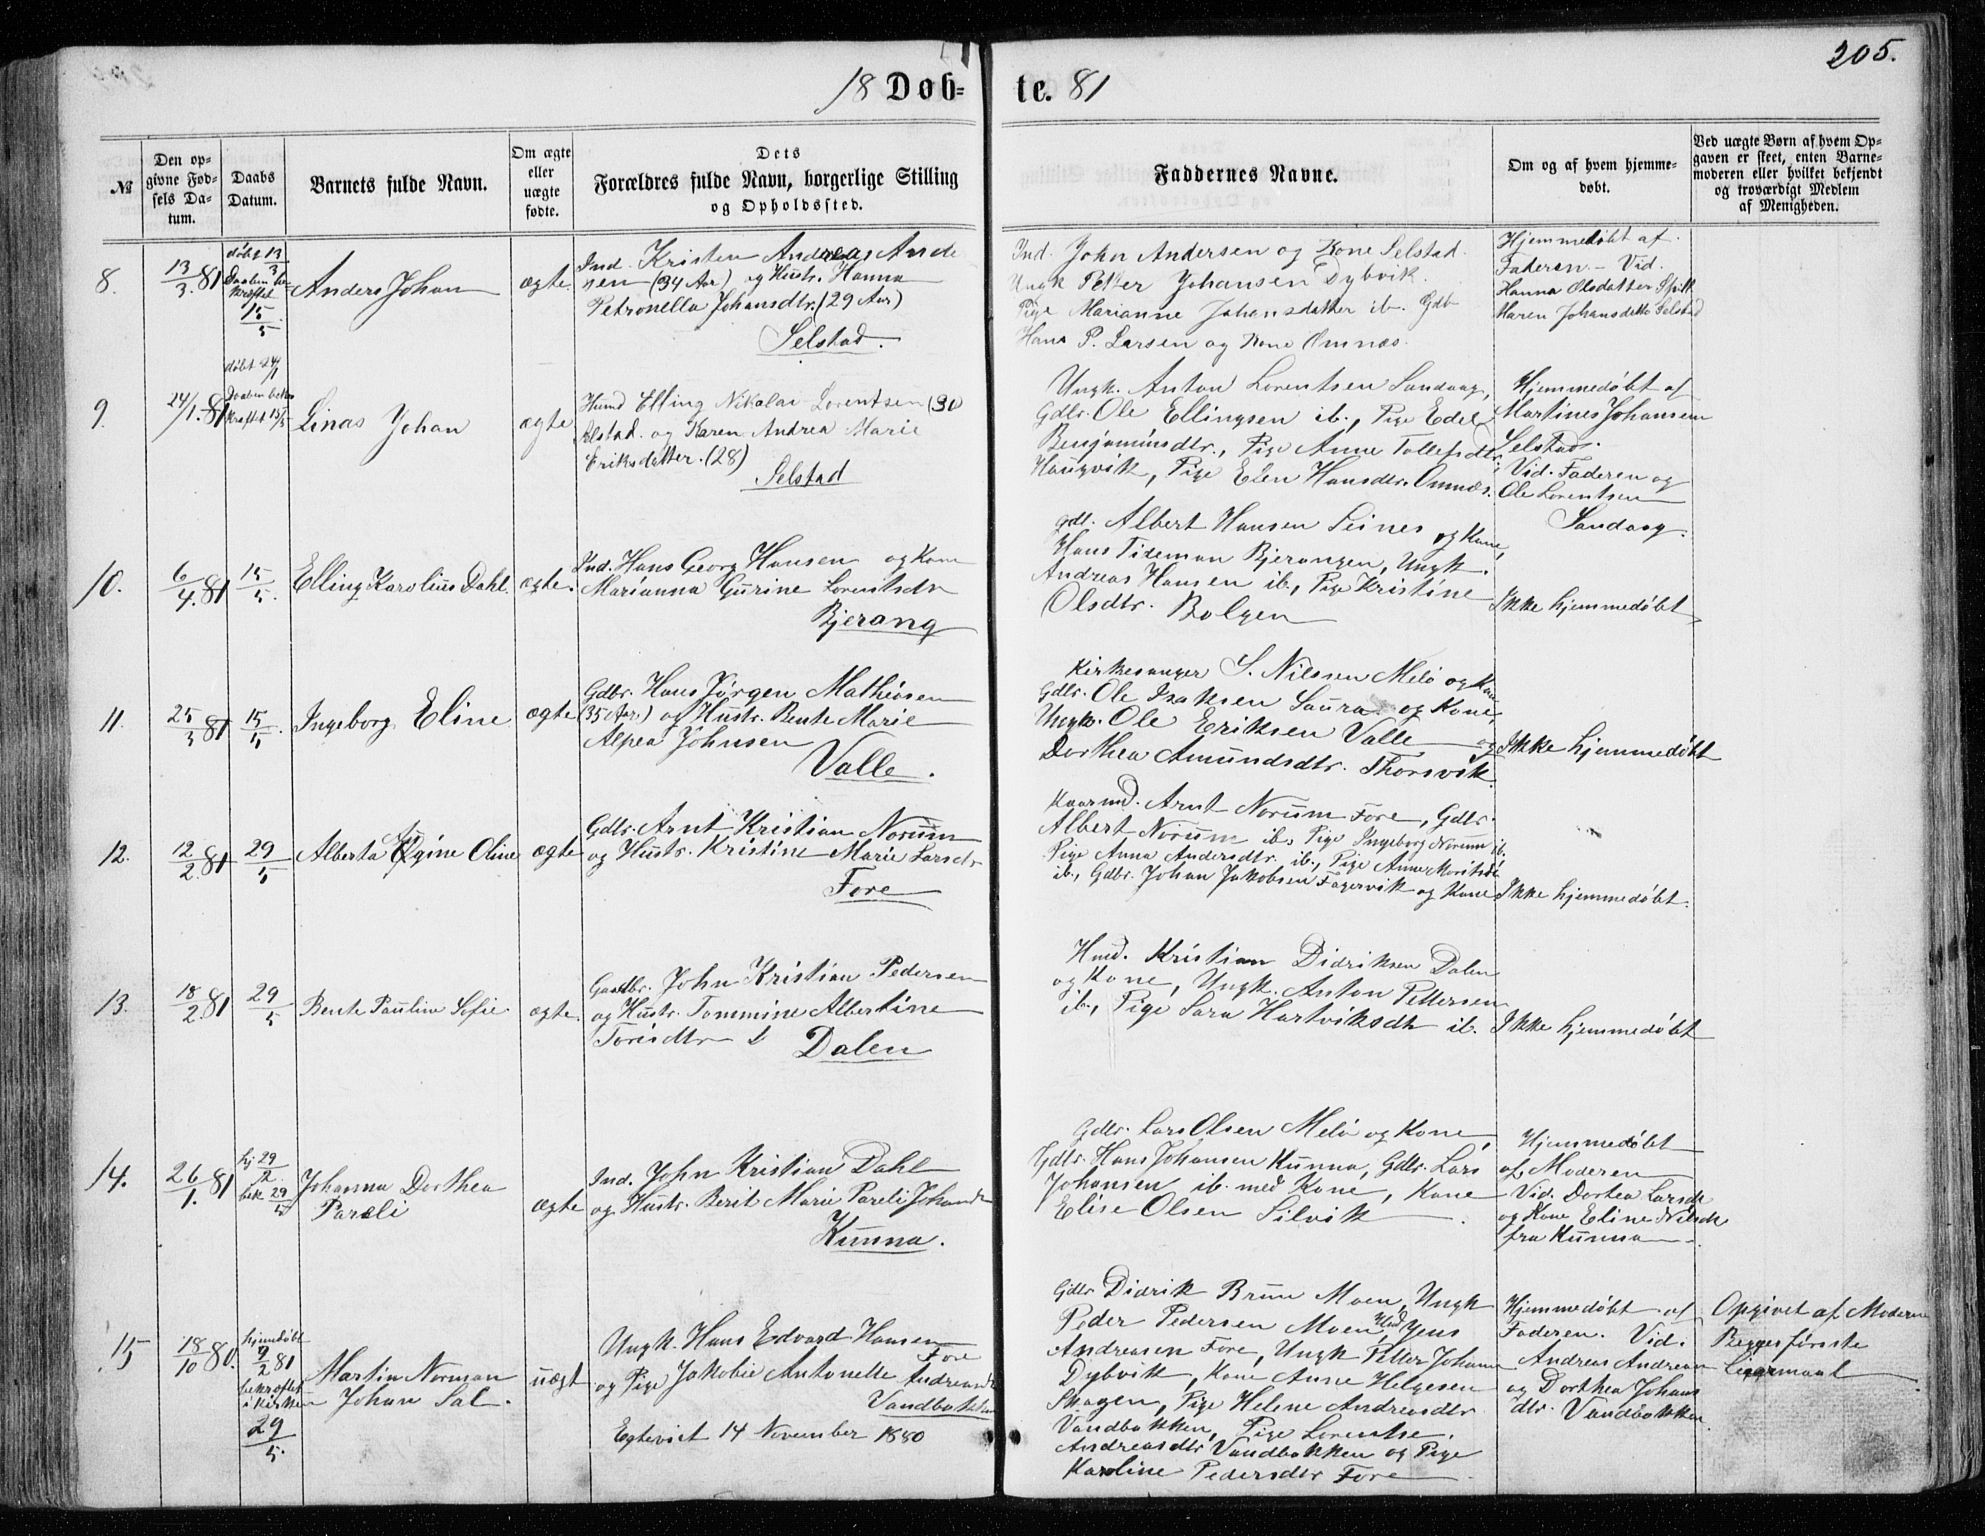 205.
18 Døb-te. 81
№
Den op-
givne Fød-
sels Da-
tum.
Daabs
Datum.
Barnets fulde Navn.
Om ægte
eller
uægte
fødte.
Dets
Forældres fulde Navn, borgerlige Stilling
og Opholdssted.
Faddernes Navne.
Om og af hvem hjemme-
døbt.
Ved uægte Børn af hvem Op-
gaven er skeet, enten Barne-
moderen eller hvilket bekjendt
og troværdigt Medlem
af Menigheden.
8.
13/3 81
døbt 13/3
Daaben be-
kræftet
15/5
Anders Johan
ægte.
Ind. Kristen Andreas Ande
nen (34 Aar) og Hustr. Hanna
Petronella Johansdtr. (29 Aar)
Selstad.
Ind. John Andersen og Kone Selstad.
Ungk Petter Johansen Dybvik.
Pige Marianne Johansdatter ib. Gdb
Hans P. Larsen og Kone Omnæs.
Hjemmedøbt af
Faderen. - Vid.
Hanna Olsdatter
Maren Johansdatte Selstad
9.
24/1. 81
døbt 24/1
Daaben be-
kræftet 15/5
Linas Johan
ægte
Husmd Elling Nikolai Lorentsen (30
Alstad. og Karen Andrea Marie
Eriksdatter. (28)
Selstad
Ungk. Anton Lorentsen Sandaag,
Gdbr. Ole Ellingsen ib., Pige Edel
Benjaminsdtr., Pige Anne Tollefsdtr
Haugvik, Pige Elen Hansdtr. Omnæs.
Hjemmedøbt af
Martines Johansen
Selstad.
Vid. Faderen og
Ole Lorentsen
Sandaag.
10.
6/4. 81
15/5.
Elling Karolius Dahl.
ægte.
Ind. Hans Georg Hansen og Kone
Marianna Gurine Lorentsdtr
Bjerang
Gdb. Albert Hansen Seines og Kone,
Hans Tideman Bjerangen, Ungk.
Andreas Hansen ib., Pige Kristine
Olsdtr. Bolgen
Ikke hjemmedøbt
11.
25/3 81
15/5.
Ingeborg Eline
ægte
Gdbr. Hans Jørgen Mathiasen
(35 Aar) og Hustr. Bente Marie
Alpea Johnsen
Valle.
Kirkesanger S. Nilsen Melø og Kone
Gdbr. Ole Isaksen Saura og Kone,
Ungk. Ole Eriksen Valle og
Dorthea Amundsdtr. Thorsvik.
Ikke hjemmedøbt
12.
12/2. 81
29/5
Alberta gine Oline
ægte
Gdbr. Arnt Kristian Norum
og Hustr. Kristine Marie Larsdtr
Fore
Kaarmd. Arnt Norum Fore, Gdbr.
Albert Norum ib., Pige Ingeborg Norum ib.
Pige Anna Andersdtr. ib., Pige Anne Moritsdtr
ib., Gdbr. Johan Jakobsen Fagervik og Kone
Ikke hjemmedøbt.
13.
18/2. 81
29/5
Bente Pauline Sofie
ægte.
Gaardbr. John Kristian Pedersen
og Hustr. Tommine Albertine
Torisdtr
Dalen
Husmd. Kristian Didriksen Dalen
og Kone, Ungk. Anton Pettersen
ib., Pige Sara Hartviksdtr ib.
Ikke hjemmedøbt
14.
26/1. 81
hj 29/2
bek 29/5
Johanna Dorthea
Pareli
ægte
Ind. John Kristian Dahl
og Hustr. Berit Marie Pareli Johansdtr
Kunna.
Gdbr. Lars Olsen Melø og Kone,
Gdbr. Hans Johansen Kunna, Gdbr. Lars
Johansen ib. med Kone, Kone
Elise Olsen Silvik.
Hjemmedøbt
af Moderen
Vid. Dortea Larsdtr
og Kone Eline Nilsdtr
fra Kunna.
15
18/10 80.
hjemdøbt
9/2 81
bekræftet
i kirken
29/5.
Martin Norman
Johan Sal.
uægt
Ungk. Hans Edvard Hansen
Fore
og Pige Jakobie Antonette Andreasdtr
Vandbakken
Egteviet 14 November 1880
Gdbr Didrik Bruun Moen, Ungk
Peder Pedersen Moen, Husmd Jens
Andreasen Fore, Ungk Petter Johansen
Dybvik, Kone Anne Helgesen
Skagen, Pige Helene Andreasdtr
Vandbakken, Pige Lorentse
Andreasdtr Vandbakken og Pige
Karoline Pedersdtr Fore
Hjemmedøbt af
Faderen. Vid.
Andreas Andreasen
og Dorthea Johans
dtr. Vandbakken
Opgivet af Moderen
Begges første
Leiermaal